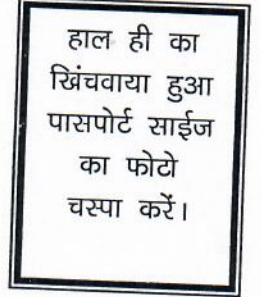 हाल ही का
खिंचवाया हुआ
पासपोर्ट साईज
का फोटो
चस्पा करें।